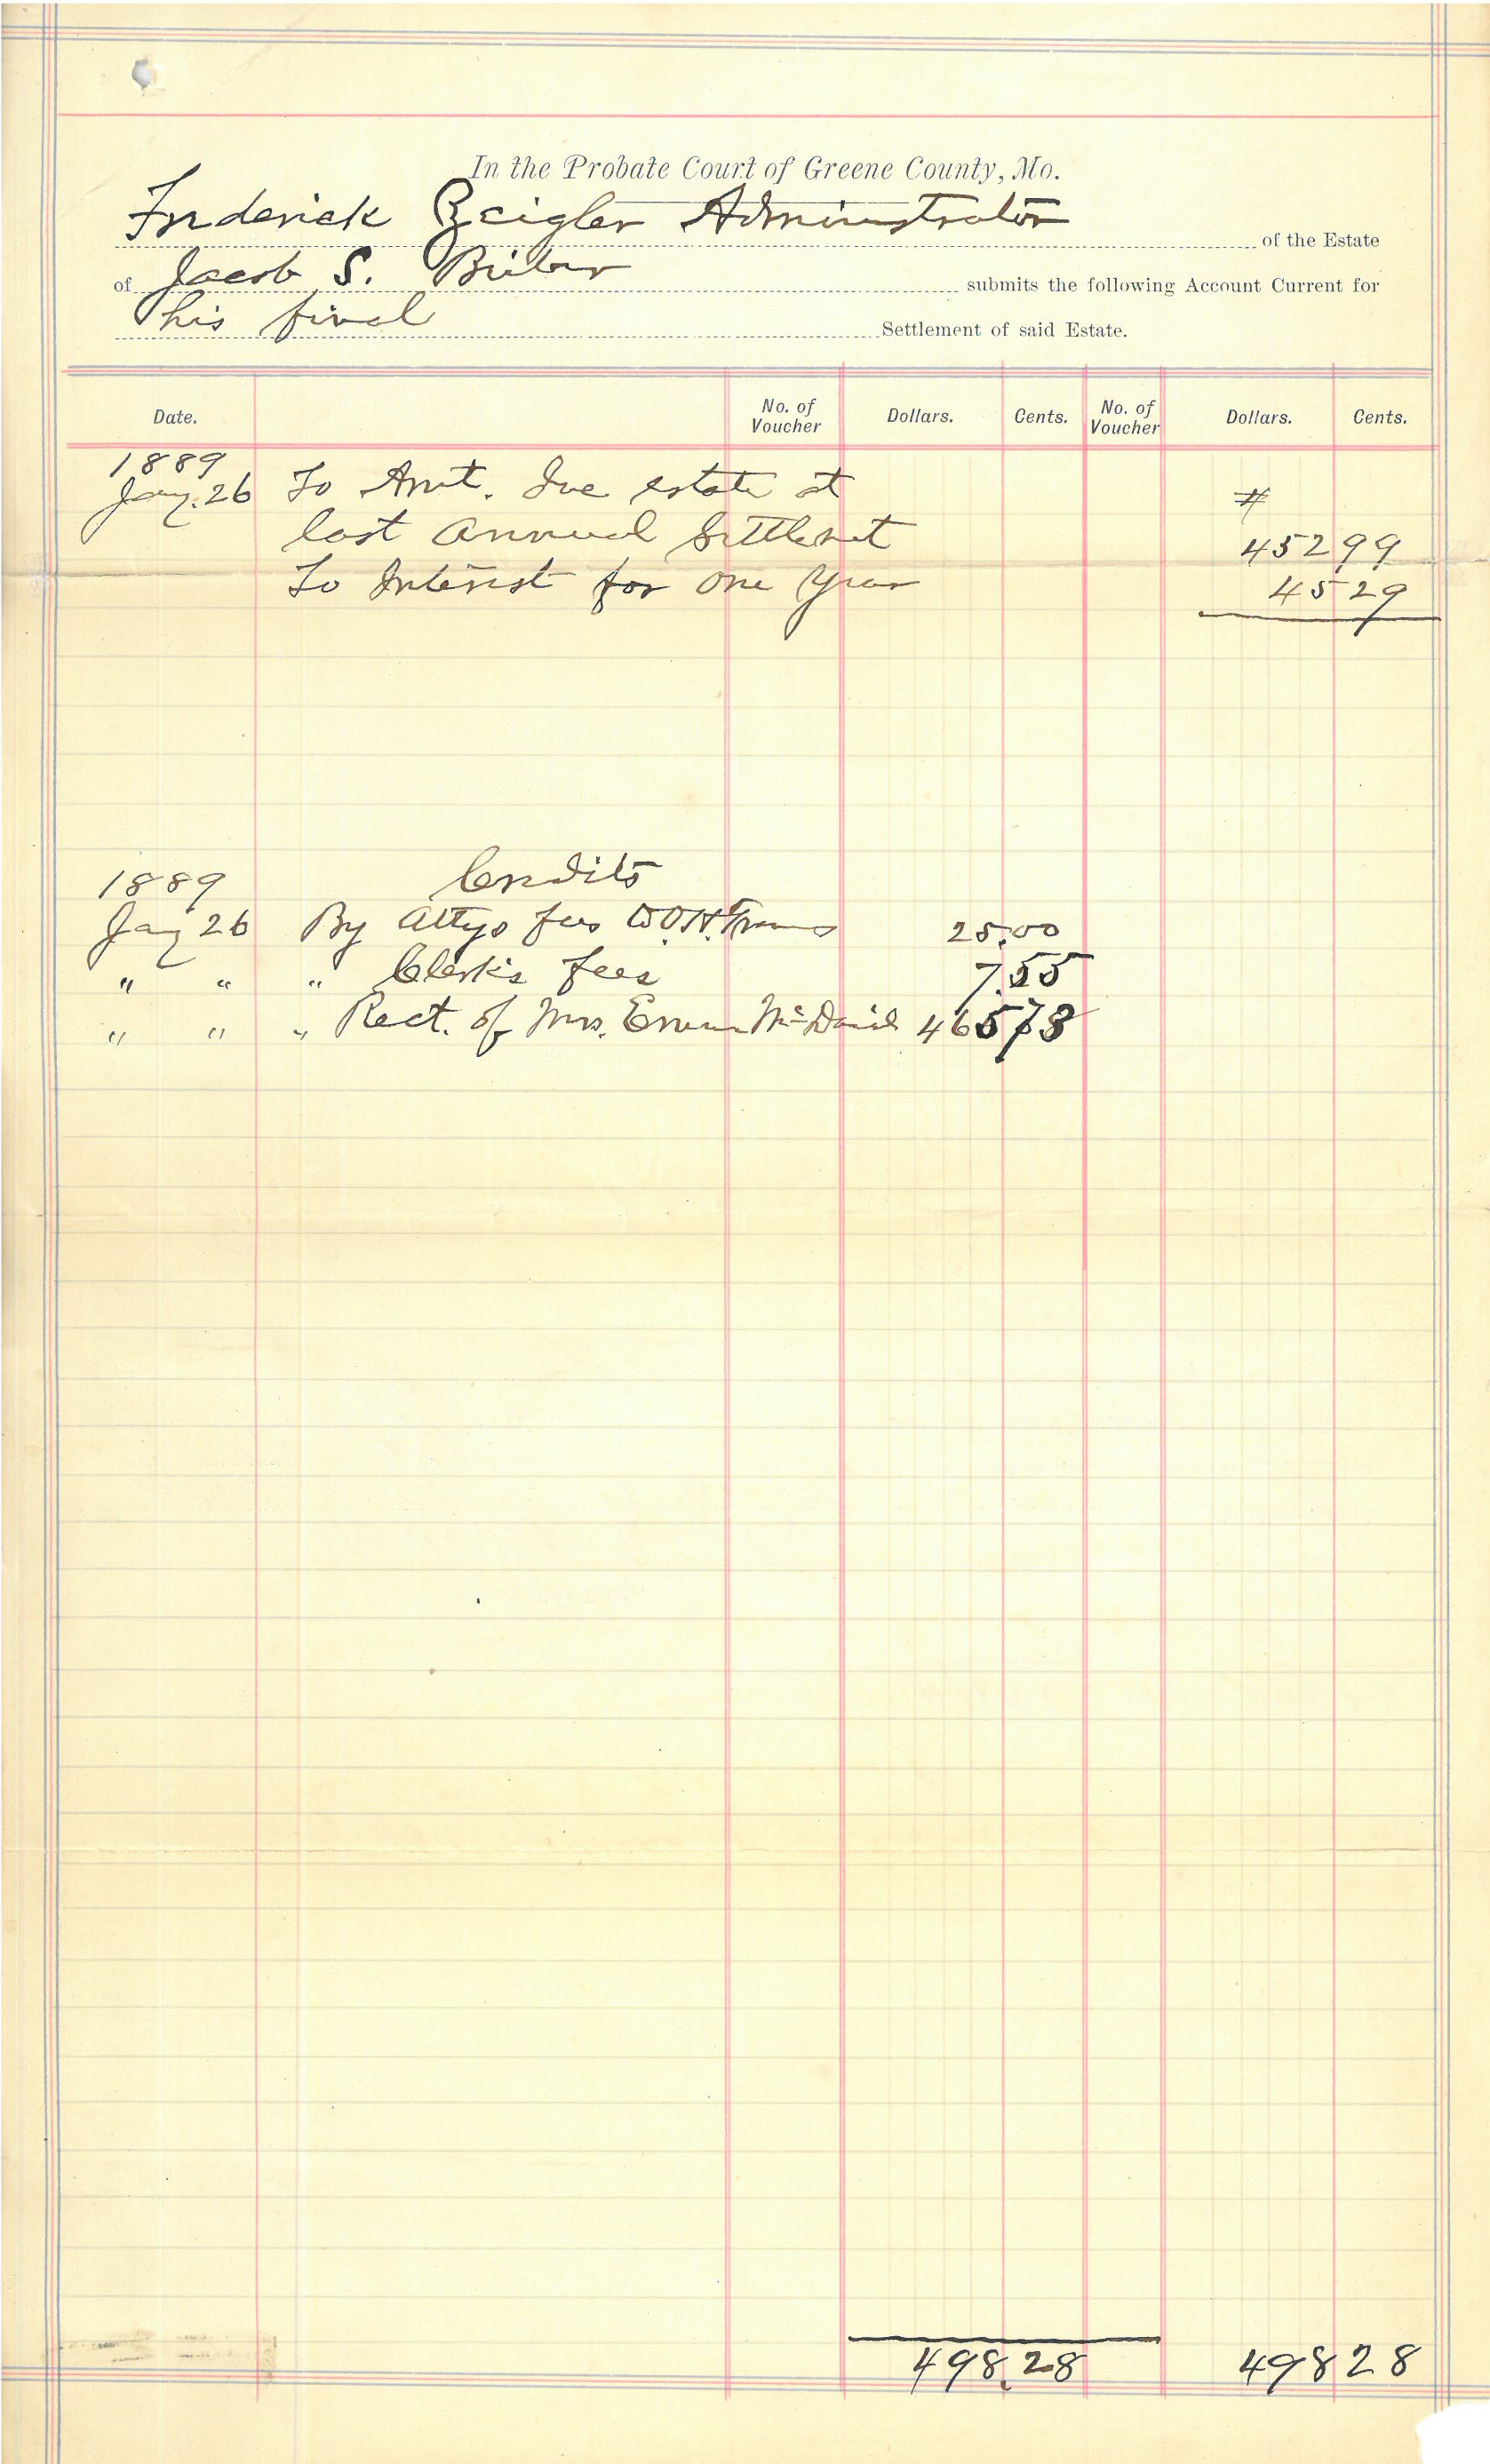 In the Probate Court of Greene County, Mo.
Frederick Zeigler Administrator of the Estate
of Jacob S. submits the following Account Current for
his final Settlement of said Estate.
Date. No. of Voucher Dollars. Cents. No. of Voucher Dollars. Cents.
1889
Jany. 26 To Amt. due estate at #
last annual Settlemt 452 99
To Interest for one year 45 29
1889 Credits
Jany 26 By Attys fees O.H. 25.00
" " " Clerk's fees 7.55
" " " Rect. of Mrs. Emma 465 73
498.28 498 28